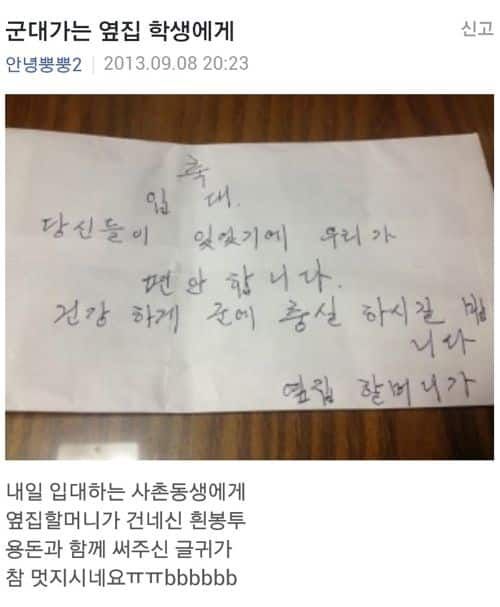 군대가는 옆집 학생에게
신고
안녕뿅뿅2 | 2013.09.08 20:23
축
입 대.
당신들이 잊었기에 우리가
편안 합니다.
건강 하게 군에 충실 하시길 밥
니다
옆집 할머니가
내일 입대하는 사촌동생에게
옆집할머니가 건네신 흰봉투
용돈과 함께 써주신 글귀가
참 멋지시네요ㅠㅠbbbbbb